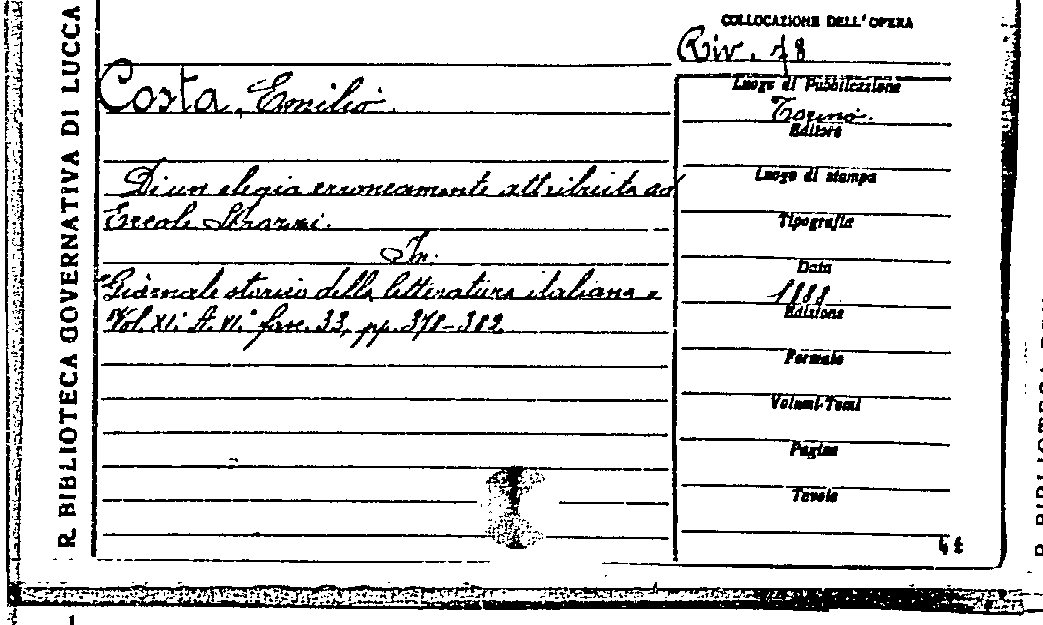 R. BIBLIOTECA GOVERNATIVA DI LUCCA
COLLOCAZIONE DELL'OPERA
Riv. 78
Costa, Emilio.
Di un elegia erroneamente attribuita ad
Ercole Strozzi.
In:
"Giornale storico della letteratura italiana"
Vol. XI.° A. VI.° fasc. 33, pp. 378-382
Luogo di Pubblicazione
Torino.
Editore
Luogo di stampa
Tipografia
Data
1888
Edizione
Formato
Volumi-Tomi
Pagine
Tavole